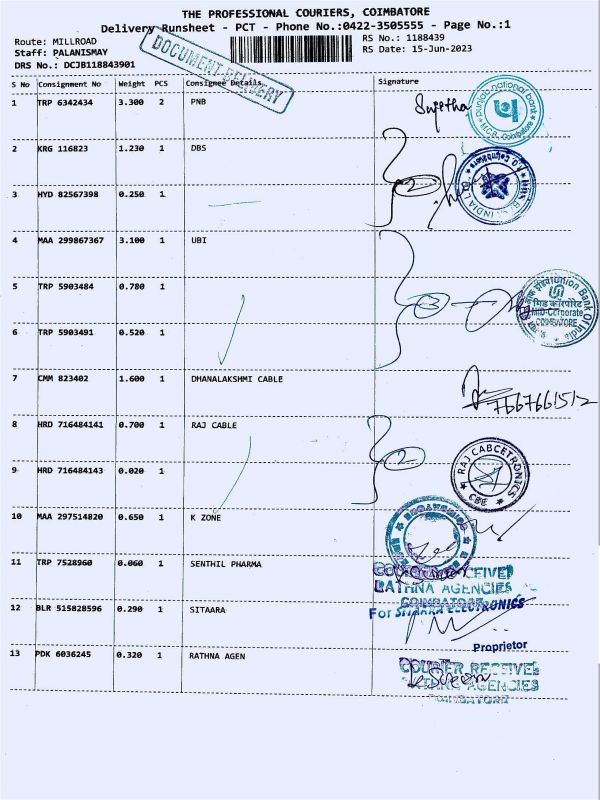 THE PROFESSIONAL COURIERS, COIMBATORE
Delivery Runsheet - PCT - Phone No.:0422-3505555 - Page No.:1
Route: MILLROAD
RS No.: 1188439
Staff: PALANISMAY
RS Date: 15-Jun-2023
DRS No.: DCJB118843901
DOCUMENT DELIVERY
S No Consignment No Weight PCS Consignee Details Signature
1 TRP 6342434 3.300 2 PNB Sujetha
punjab national bank
Coimbatore
2 KRG 116823 1.230 1 DBS
3 HYD 82567398 0.250 1
2
4 MAA 299867367 3.100 1 UBI
5 TRP 5903484 0.780 1
3
Union Bank Of India
मिड कॉरपोरेट
Mid-Corporate
COIMBATORE
6 TRP 5903491 0.520 1
7 CMM 823402 1.600 1 DHANALAKSHMI CABLE
7667661512
8 HRD 716484141 0.700 1 RAJ CABLE
2
RAJ CABCETRONICS
CBE
9 HRD 716484143 0.020 1
10 MAA 297514820 0.650 1 K ZONE
11 TRP 7528960 0.060 1 SENTHIL PHARMA
COURIER RECEIVED
RATHNA AGENCIES
COIMBATORE
12 BLR 515828596 0.290 1 SITAARA
For SITAARA ELECTRONICS
Proprietor
13 PDK 6036245 0.320 1 RATHNA AGEN
COURIER RECEIVED
RATHNA AGENCIES
COIMBATORE